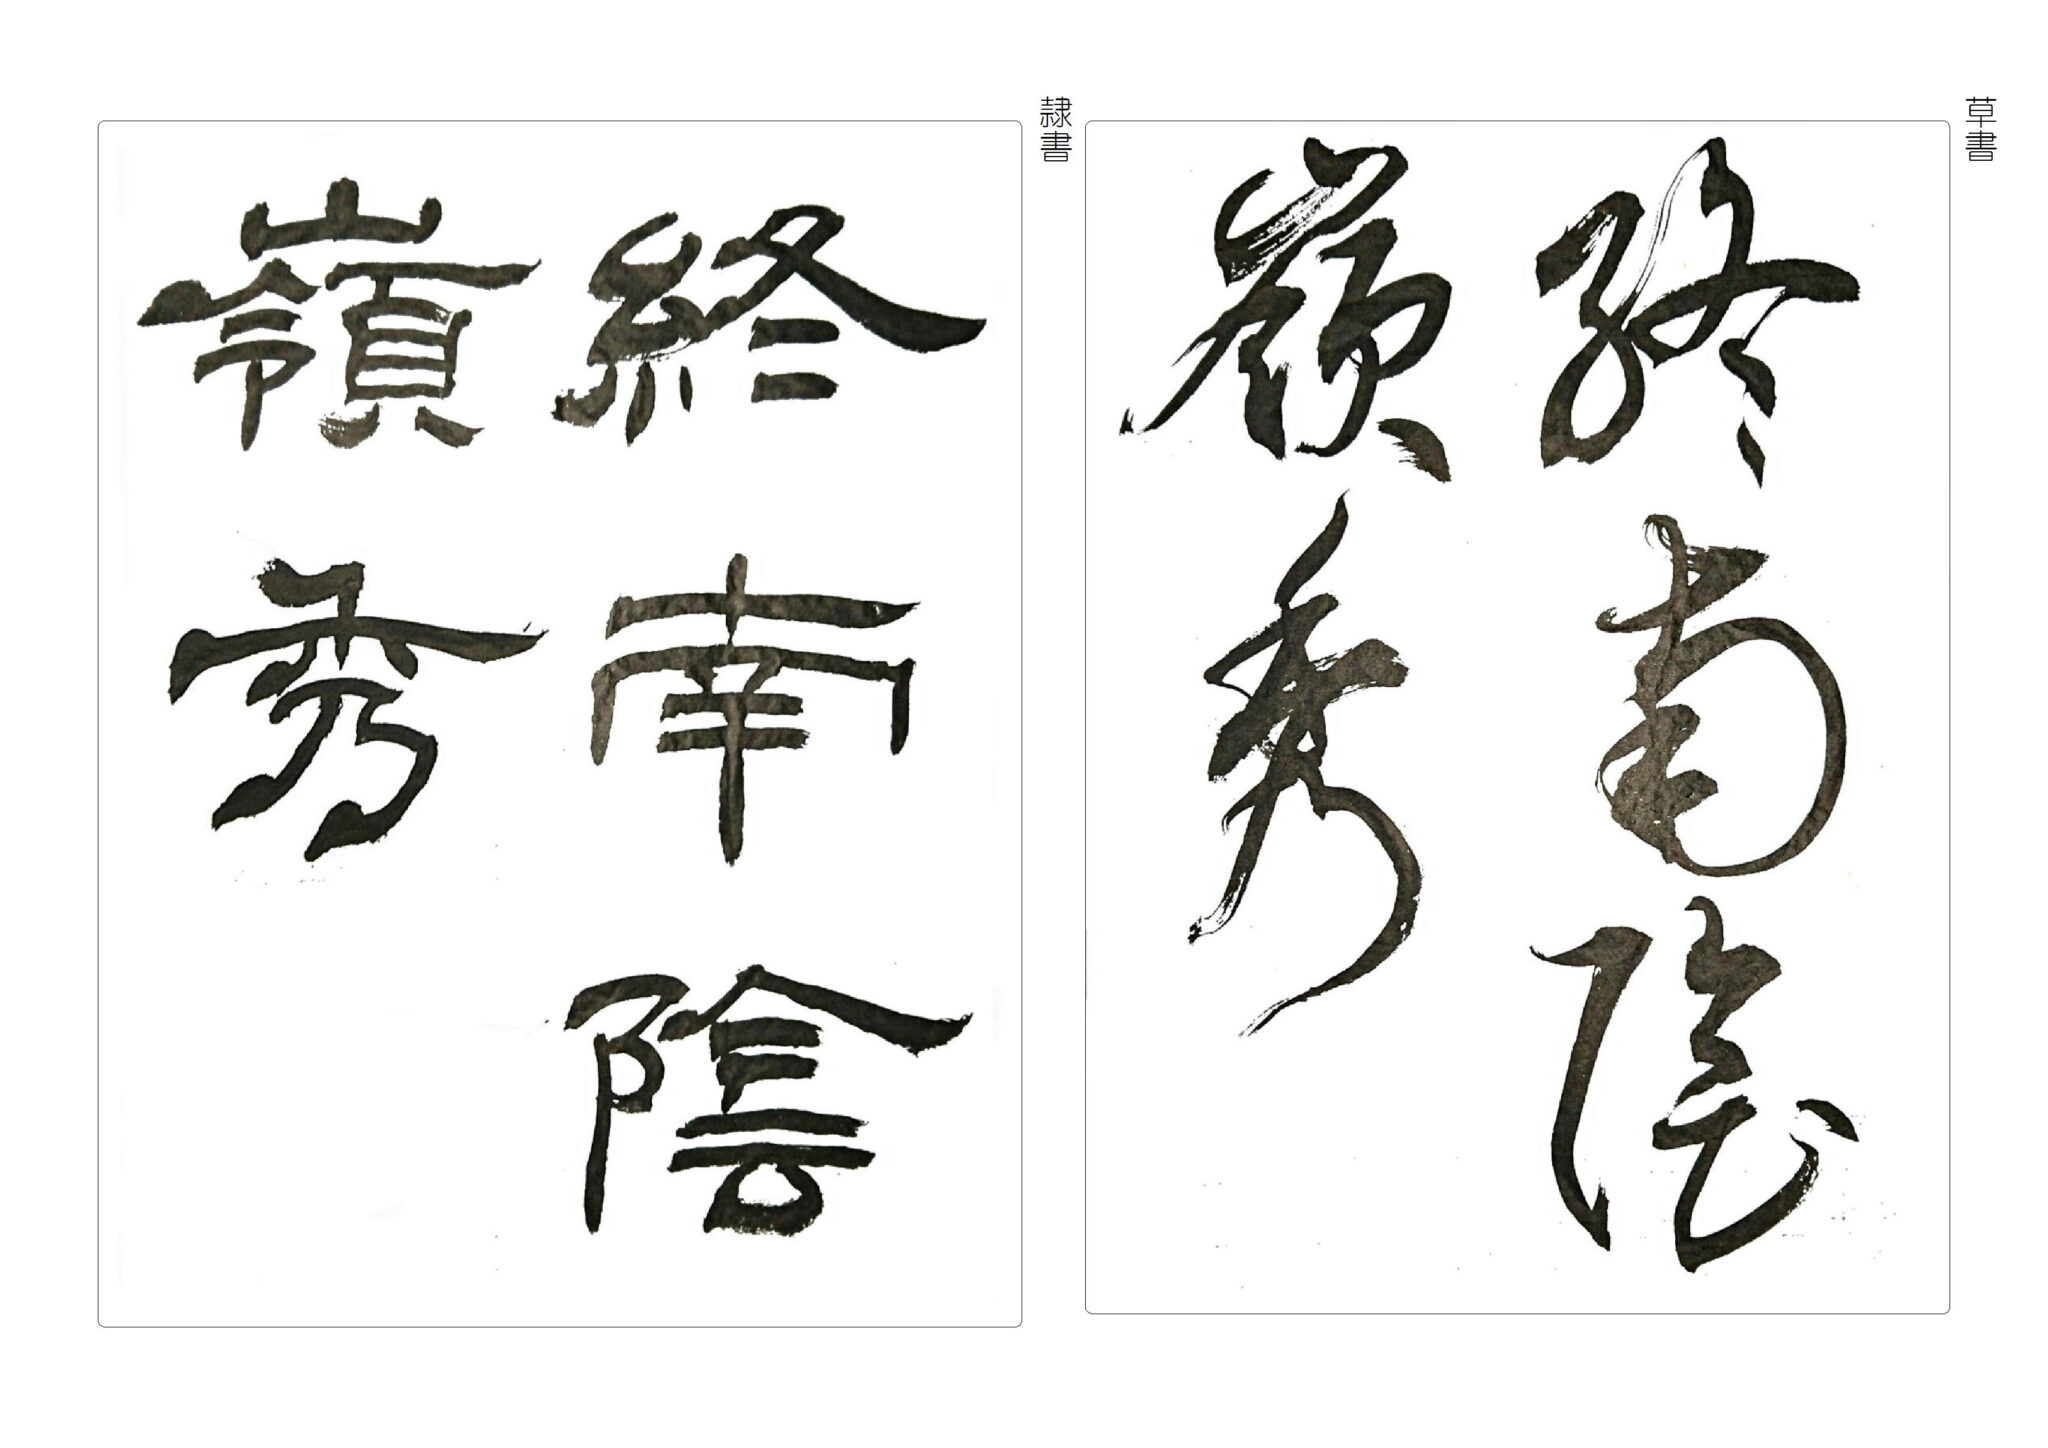 草書
終南陰
嶺秀
隷書
終南陰
嶺秀